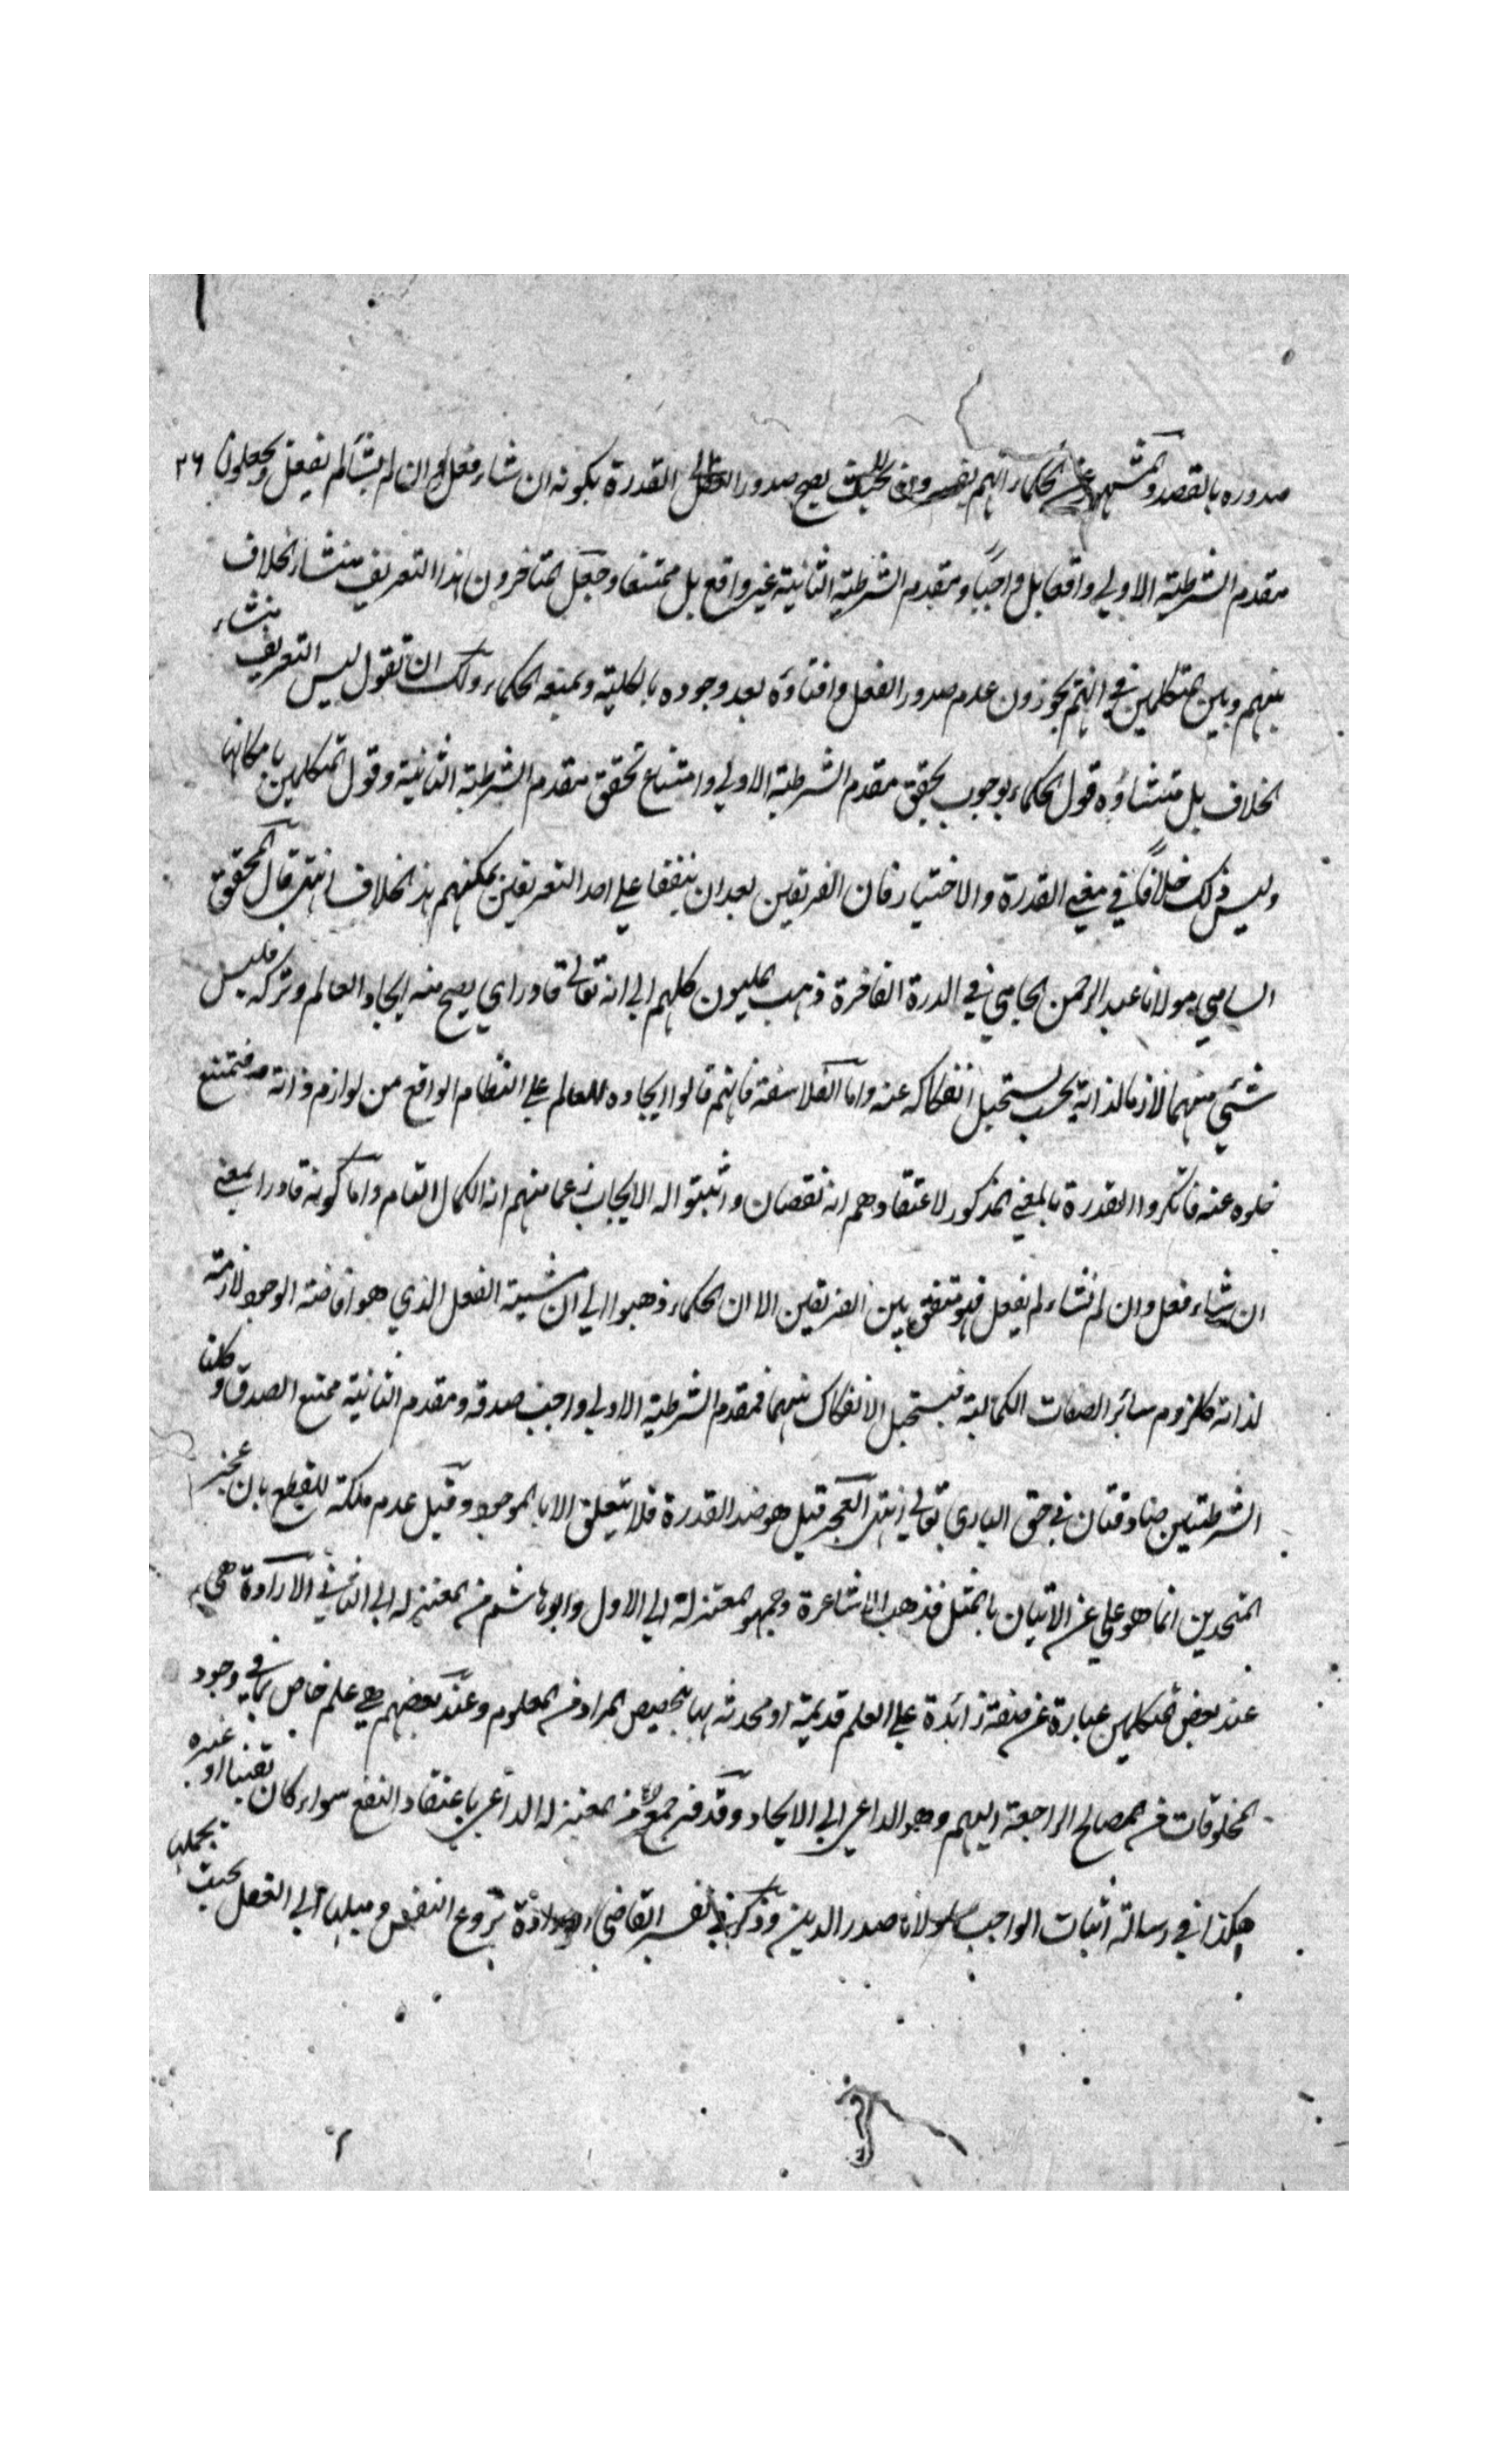 صدوره بالقصد والمشهور عن الحكماء انهم يفسرون بحيث يصح صدور الفعل القدرة بكونه ان شاء فعل وان لم يشأ لم يفعل ويجعلون ٢٦
مقدم الشرطية الاولي واقعا بل واجبًا ومقدم الشرطية الثانية غير واقع بل ممتنعا وجعل المتاخرون هذا التعريف منشاء الخلاف
بينهم وبين المتكلمين في انهم يجوزون عدم صدور الفعل وافناؤه بعد وجوده بالكلية ويمنعه الحكماء ولك ان تقول ليس التعريف منشاء
الخلاف بل منشاؤه قول الحكماء بوجوب تحقق مقدم الشرطية الاولي وامتناع تحقق مقدم الشرطية الثانية وقول المتكلمين بامكانها
وليس ذلك خلافًا في معني القدرة والاختيار فان الفريقين بعد ان يتفقا علي احد التعريفين يمكنهم هذا الخلاف انتهي قال المحقق
السامي مولانا عبد الرحمن الجامي في الدرة الفاخرة ذهب المليون كلهم الي انه تعالي قادر اي يصح منه ايجاد العالم وتركه فليس
شئي منهما لازما لذاته بحيث يستحيل انفكاكه عنه واما الفلاسفة فانهم قالوا ايجاده للعالم علي النظام الواقع من لوازم ذاته فيمتنع
خلوه عنه فانكروا القدرة بالمعني المذكور لاعتقادهم انه نقصان واثبتوا له الايجاب زعما منهم انه الكمال التام واما كونه قادرا بمعني
ان شاء فعل وان لم نشاء لم يفعل فهو متفق بين الفريقين الا ان الحكماء ذهبوا الي ان مشيية الفعل الذي هو افاضة الوجود لازمة
لذاته كلزوم سائر الصفات الكمالية فيستحيل الانفكاك بينهما فمقدم الشرطية الاولي واجب صدقه ومقدم الثانية ممتنع الصدق وكلتا
الشرطيتين صادقتان في حق الباري تعالي انتهي العجز قيل هو ضد القدرة فلا يتعلق الا بالموجود وقيل عدم ملكة للقطع بان عجز
المتحدين انما هو علي عن الاتيان بالمثل فذهب الاشاعرة وجمهور المعتزلة الي الاول وابو هاشم من المعتزلة الي الثاني الارادة هي
عند بعض المتكلمين عبارة عن صفة زائدة علي العلم قديمة او محدثة بها يخصص المراد من المعلوم وعند بعضهم هي علم خاص بما في وجود
المخلوقات من المصالح الراجعة اليهم وهو الداعي الي الايجاد وقد فسر جمع من المعتزلة الداعي باعتقاد النفع سواء كان يقينيا او غيره
هكذا في رسالة اثبات الواجب لمولانا صدر الدين وذكر في تفسير القاضي الارادة نزوع النفس وميلها الي الفعل بحيث يحملها